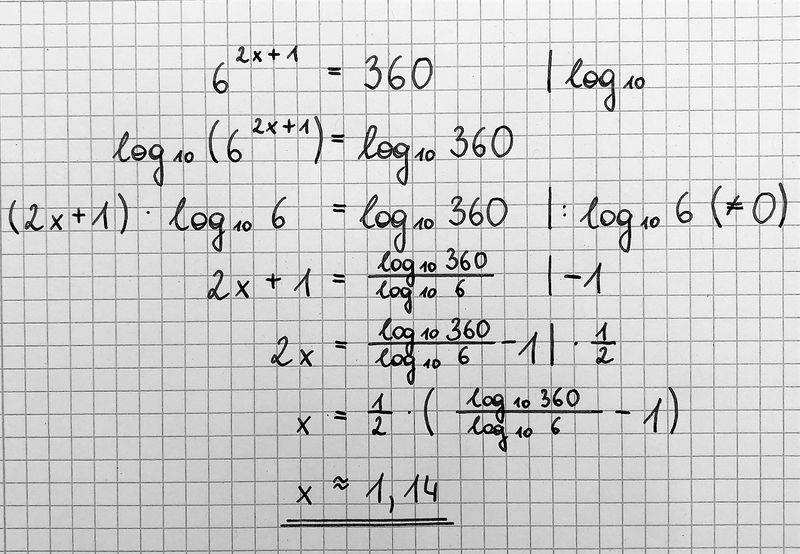 6^(2x+1) = 360 | log₁₀
log₁₀(6^(2x+1)) = log₁₀ 360
(2x+1) · log₁₀ 6 = log₁₀ 360 | : log₁₀ 6 (≠0)
2x + 1 = (log₁₀ 360)/(log₁₀ 6) | -1
2x = (log₁₀ 360)/(log₁₀ 6) - 1 | · 1/2
x = 1/2 · ((log₁₀ 360)/(log₁₀ 6) - 1)
x ≈ 1,14